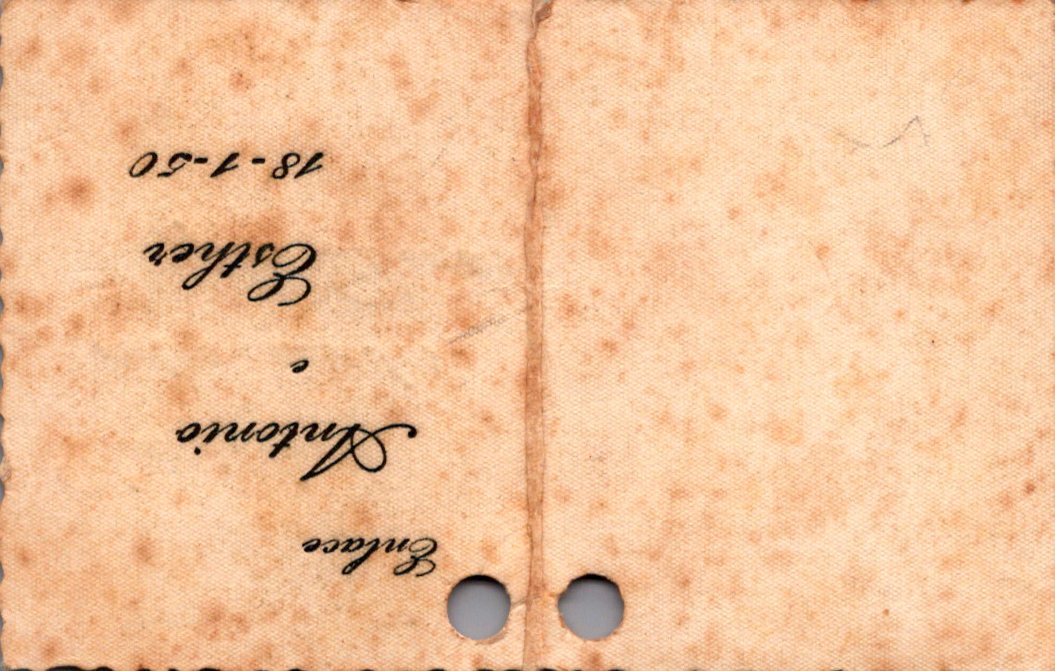 Enlace
Antonio
e
Esther
18-1-50